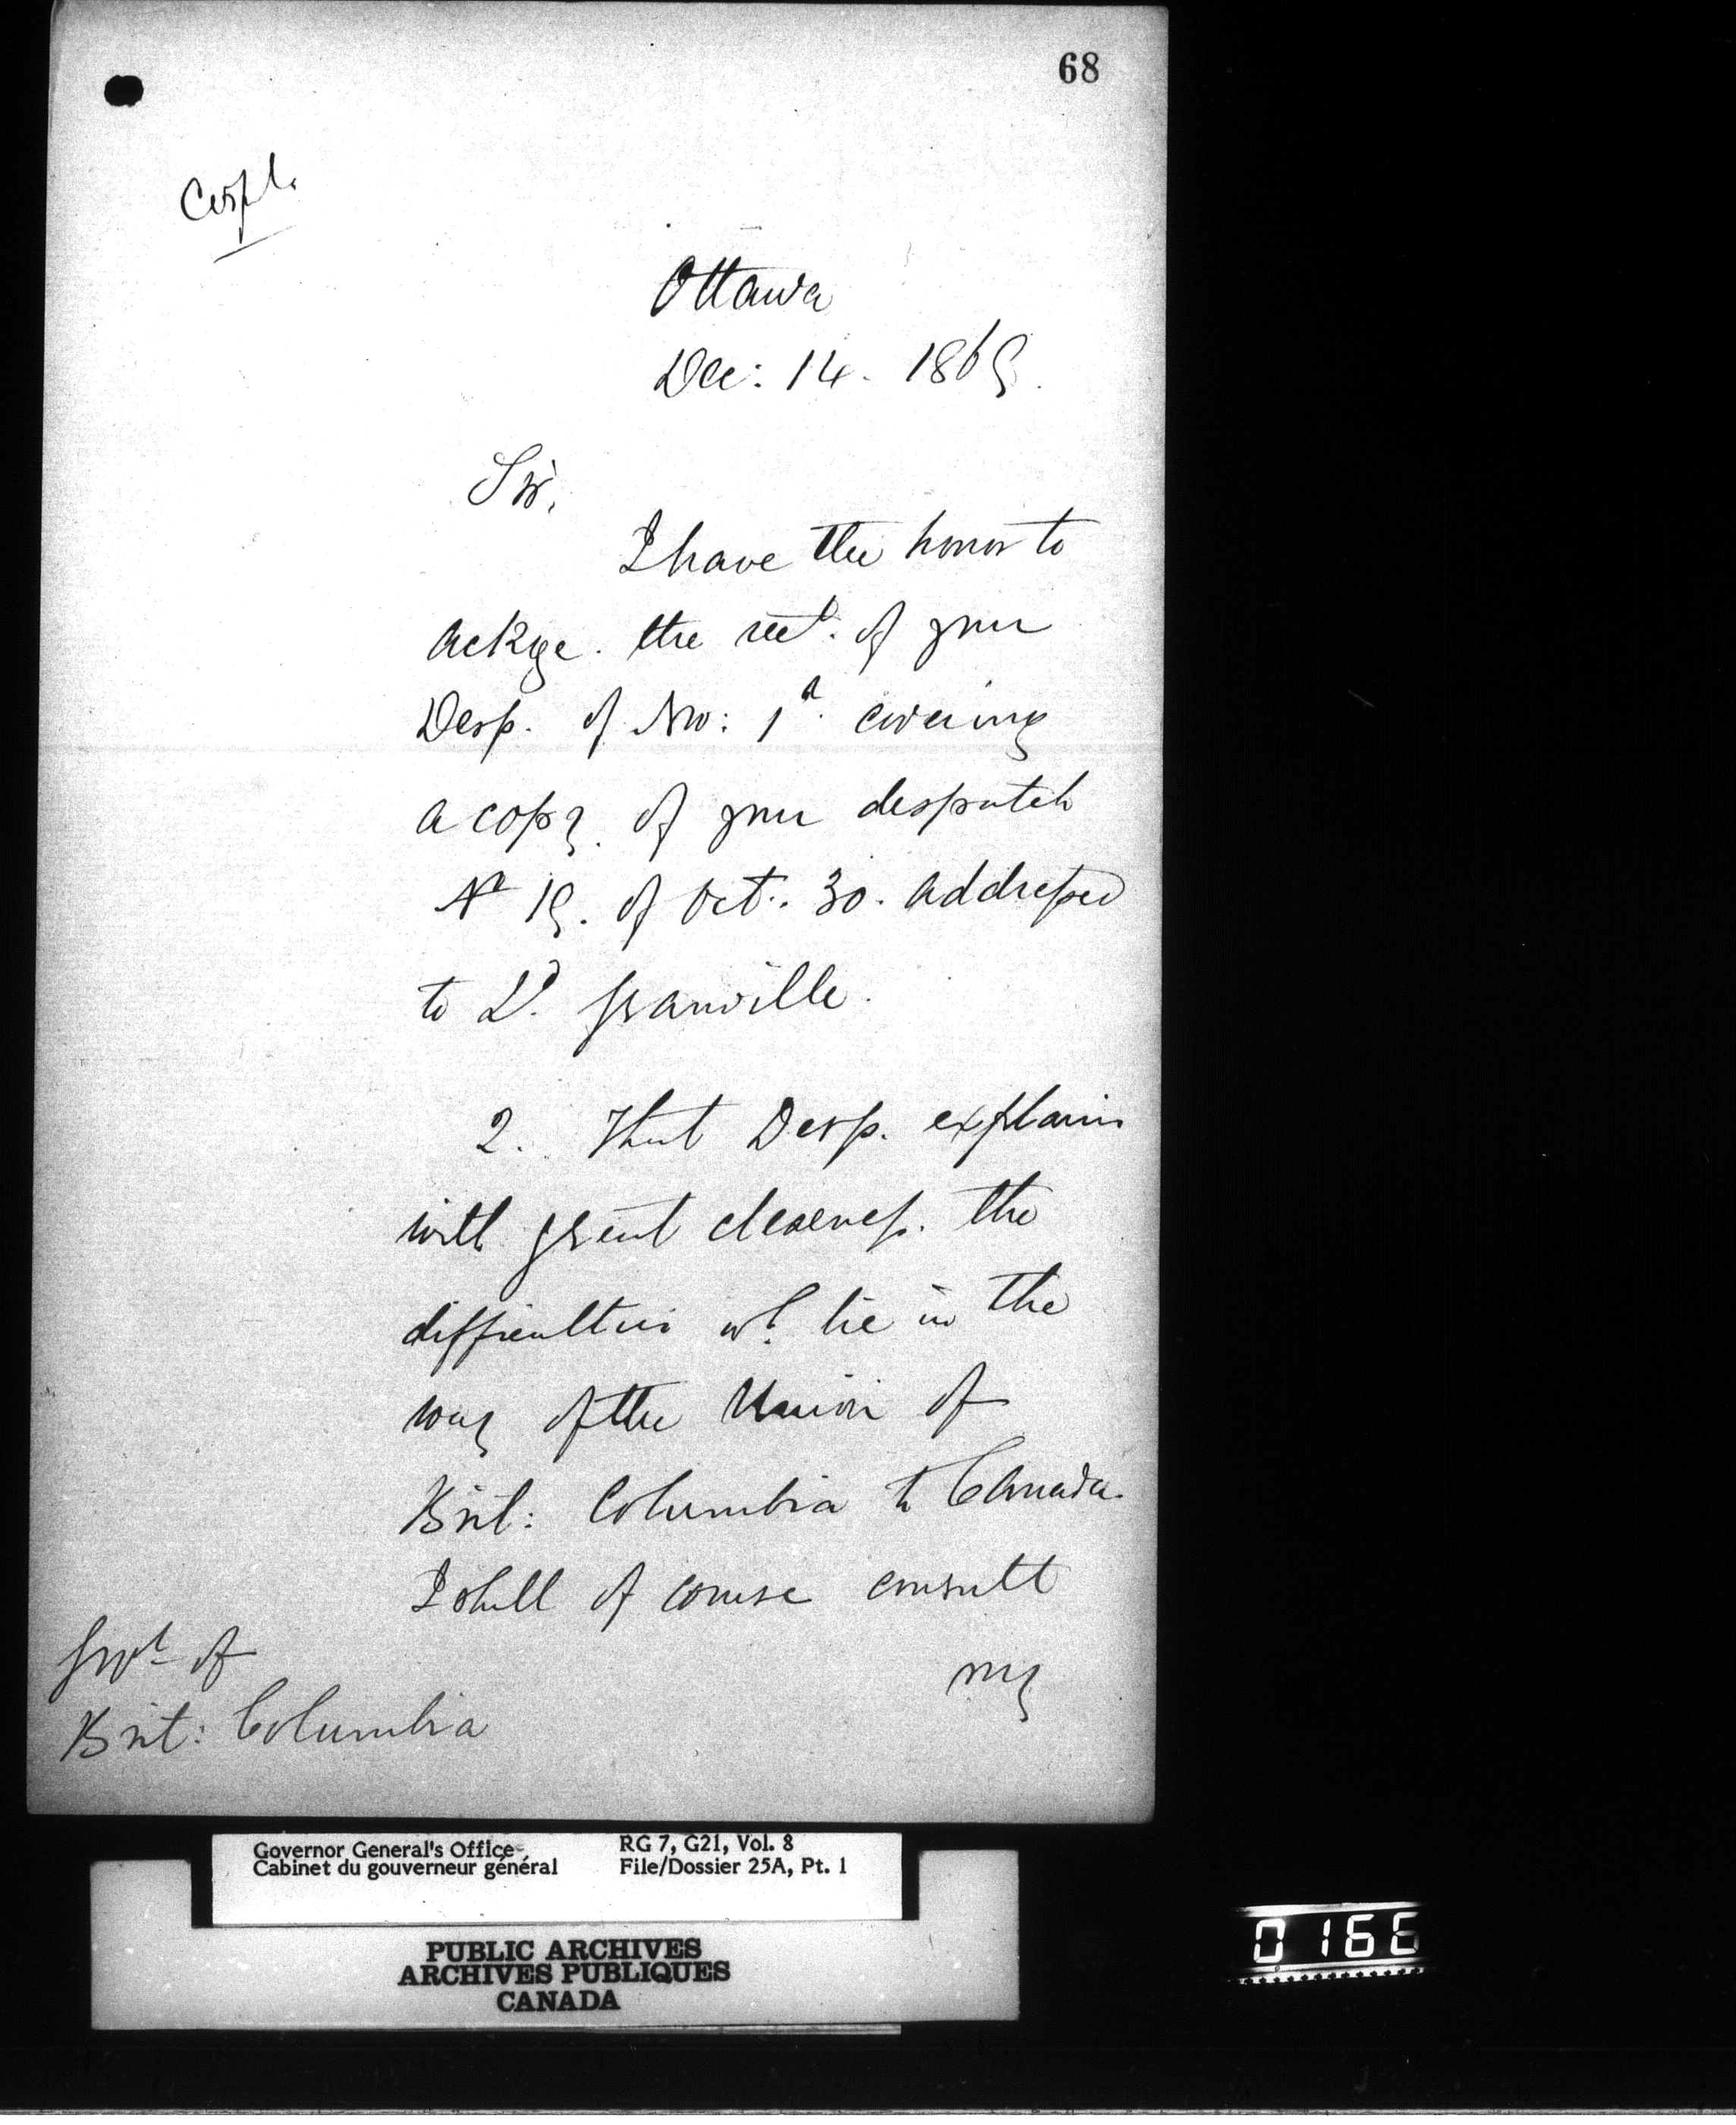 68
Ottawa
Dec: 14. 1869.
Sir,
I have the honor to
ackge. the rect. of your
Desp. of Nov: 1st. covering
a copy of your despatch
No 19. of Oct:. 30. addressed
to Ld. Granville.
2. That Desp. explains
with great clearness. the
difficulties wh. lie in the
way of the Union of
Brit: Columbia to Canada.
I shall of course consult
my
Govr of
Brit: Columbia
Governor General's Office
Cabinet du gouverneur général
RG 7, G21, Vol. 8
File/Dossier 25A, Pt. 1
PUBLIC ARCHIVES
ARCHIVES PUBLIQUES
CANADA
0166